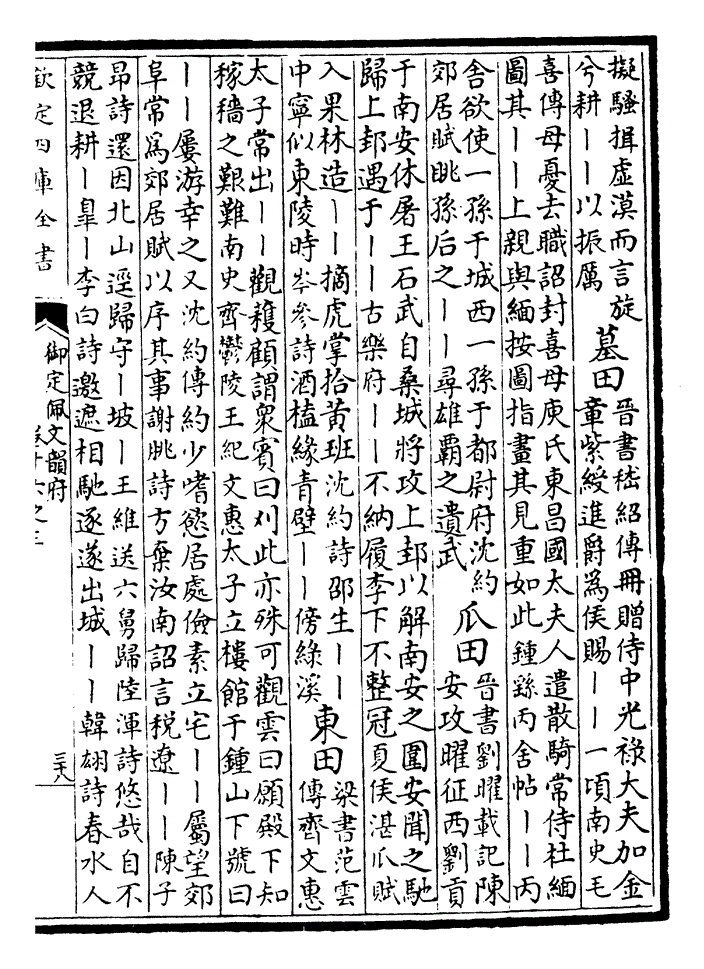 擬騷揖虛漠而言旋
兮耕丨丨以振厲
墓田
晉書嵇紹傳冊贈侍中光祿大夫加金
章紫綬進爵為侯賜丨丨一頃南史毛
喜傳母憂去職詔封喜母庾氏東昌國太夫人遣散騎常侍杜緬
圖其丨丨上親與緬按圖指畫其見重如此鍾繇丙舍帖丨丨丙
舍欲使一孫于城西一孫于都尉府沈約
郊居賦眺孫后之丨丨尋雄霸之遺武
瓜田
晉書劉曜載記陳
安攻曜征西劉貢
于南安休屠王石武自桑城將攻上邽以解南安之圍安聞之馳
歸上邽遇于丨丨古樂府丨丨不納履李下不整冠夏侯湛瓜賦
入果林造丨丨摘虎掌拾黃班沈約詩邵生丨丨
中寧似東陵時岑參詩酒榼緣青壁丨丨傍綠溪
東田
梁書范雲
傳齊文惠
太子常出丨丨觀穫顧謂眾賓曰刈此亦殊可觀雲曰願殿下知
稼穡之艱難南史齊鬱陵王紀文惠太子立樓館于鍾山下號曰
丨丨屢游幸之又沈約傳約少嗜慾居處儉素立宅丨丨屬望郊
阜常為郊居賦以序其事謝眺詩方棄汝南詔言稅遼丨丨陳子
昂詩還因北山逕歸守丨坡丨王維送六舅歸陸渾詩悠哉自不
競退耕丨皐丨李白詩邀遮相馳逐遂出城丨丨韓翃詩春水人
欽定四庫全書
御定佩文韻府
卷十六之三
三十八